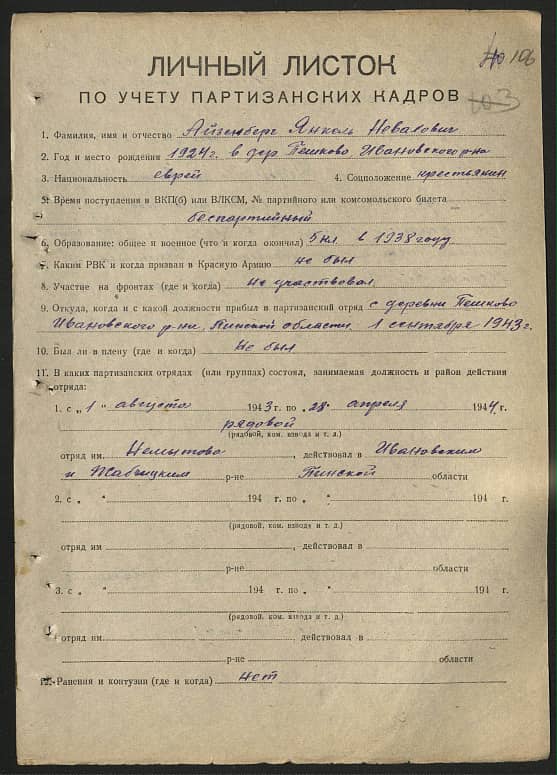 106
ЛИЧНЫЙ ЛИСТОК
ПО УЧЕТУ ПАРТИЗАНСКИХ КАДРОВ
103
1. Фамилия, имя и отчество Айзенберг Янколь Невахович
2. Год и место рождения 1924г. в дер Пешково Ивановского р-на
3. Национальность еврей 4. Соцположение крестьянин
5. Время поступления в ВКП(б) или ВЛКСМ, № партийного или комсомольского билета
беспартийный
6. Образование: общее и военное (что и когда окончил) 5 кл в 1938 году
7. Каким РВК и когда призван в Красную Армию не был
8. Участие на фронтах (где и когда) не участвовал
9. Откуда, когда и с какой должности прибыл в партизанский отряд с деревни Пешково
Ивановского р-на, Пинской области 1 сентября 1943г.
10. Был ли в плену (где и когда) не был
11. В каких партизанских отрядах (или группах) состоял, занимаемая должность и район действия
отряда:
1. с „1“ августа 1943 г. по „28“ апреля 1944 г.
рядовой
(рядовой, ком. взвода и т. д.)
отряд им Немытова, действовал в Ивановским
и Жабчицким р-не Пинской области
2. с „ “ 194 г. по „ “ 194 г.
(рядовой, ком. взвода и т. д.)
отряд им , действовал в
р-не области
3. с „ “ 194 г. по „ “ 194 г.
(рядовой, ком. взвода и т. д.)
отряд им , действовал в
р-не области
12. Ранения и контузии (где и когда) нет